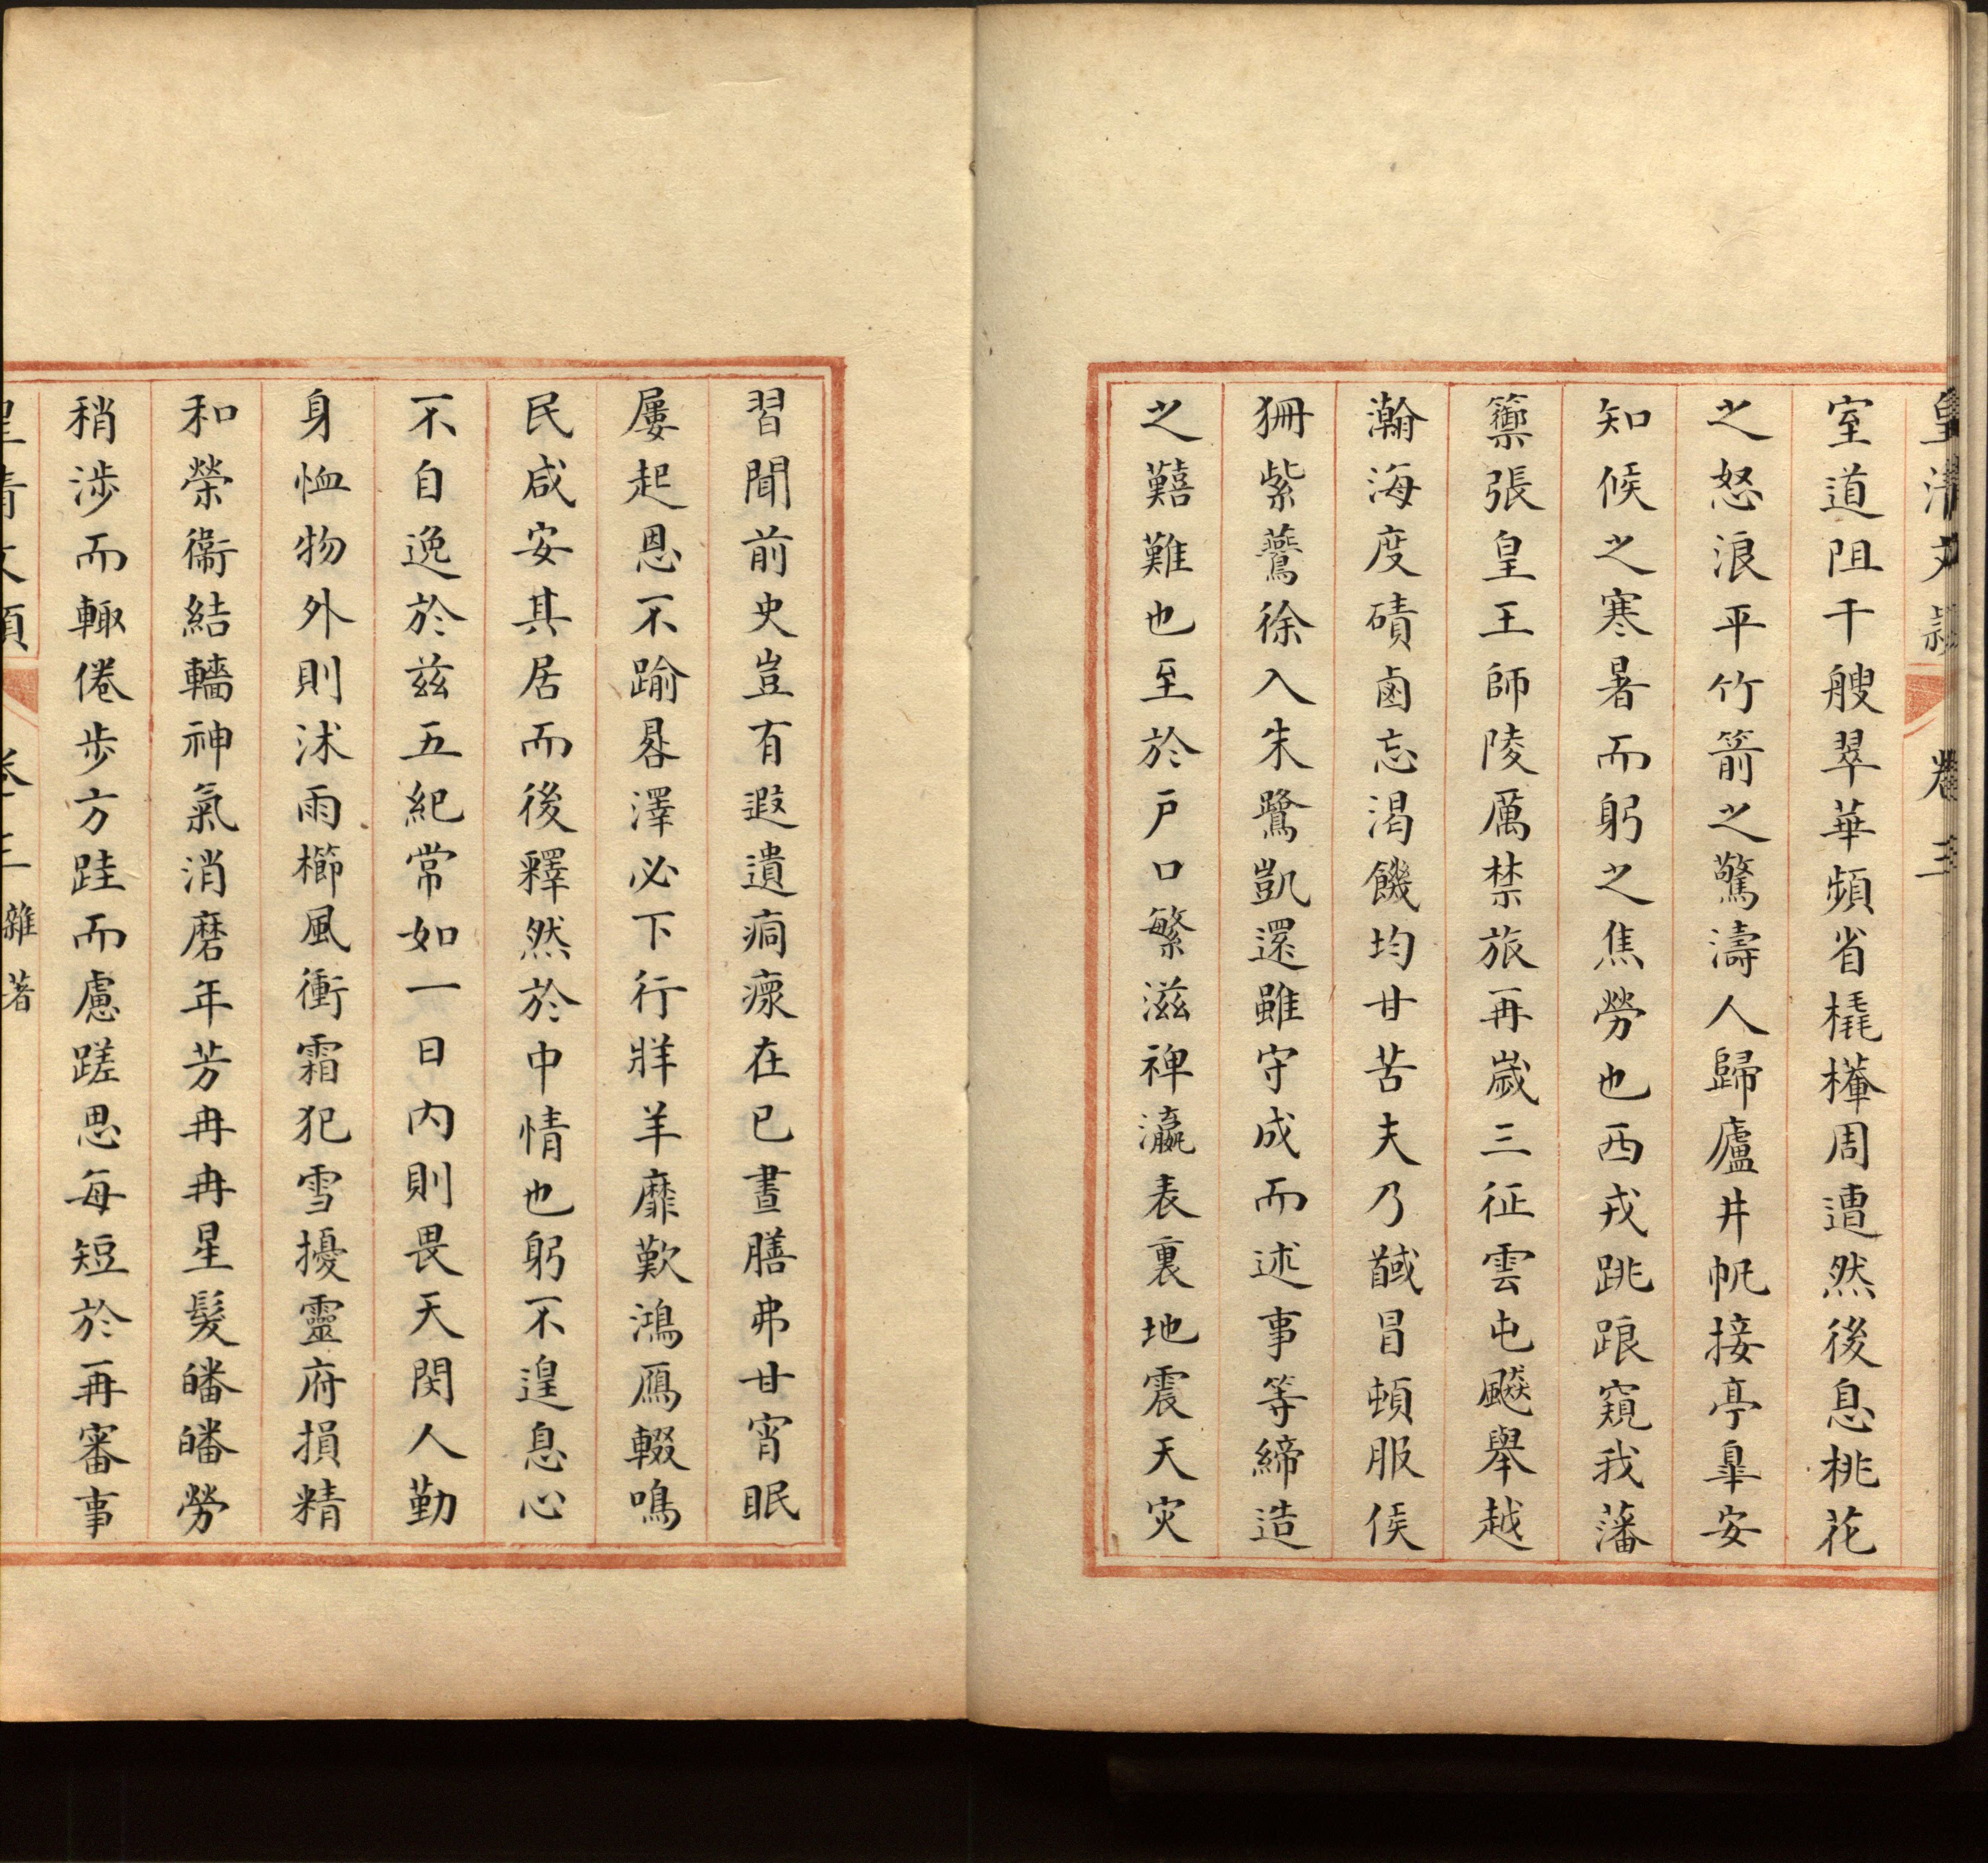 皇清文穎 卷三
室道阻千艘翠華頻省橇樏周遭然後息桃花
之怒浪平竹箭之驚濤人歸廬井帆接亭臯安
知候之寒暑而躬之焦勞也西戎跳踉窺我藩
籞張皇王師陵厲禁旅再歲三征雲屯飈舉越
瀚海度磧鹵忘渴饑均甘苦夫乃馘冒頓服侯
狦紫鷰徐入朱鷺凱還雖守成而述事等締造
之囏難也至於戶口繁滋禆瀛表裏地震天灾
習聞前史豈有遐遺痌瘝在已晝膳弗甘宵眠
屢起恩不踰晷澤必下行牂羊靡歎鴻鴈輟鳴
民咸安其居而後釋然於中情也躬不遑息心
不自逸於兹五紀常如一日内則畏天閔人勤
身恤物外則沭雨櫛風衝霜犯雪擾靈府損精
和榮衞結轖神氣消磨年芳冉冉星髮皤皤勞
稍涉而輙倦步方跬而慮蹉思每短於再審事
皇清文穎 卷三 雜著